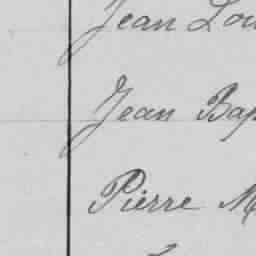 Jean Lou
Jean Bap
Pierre M